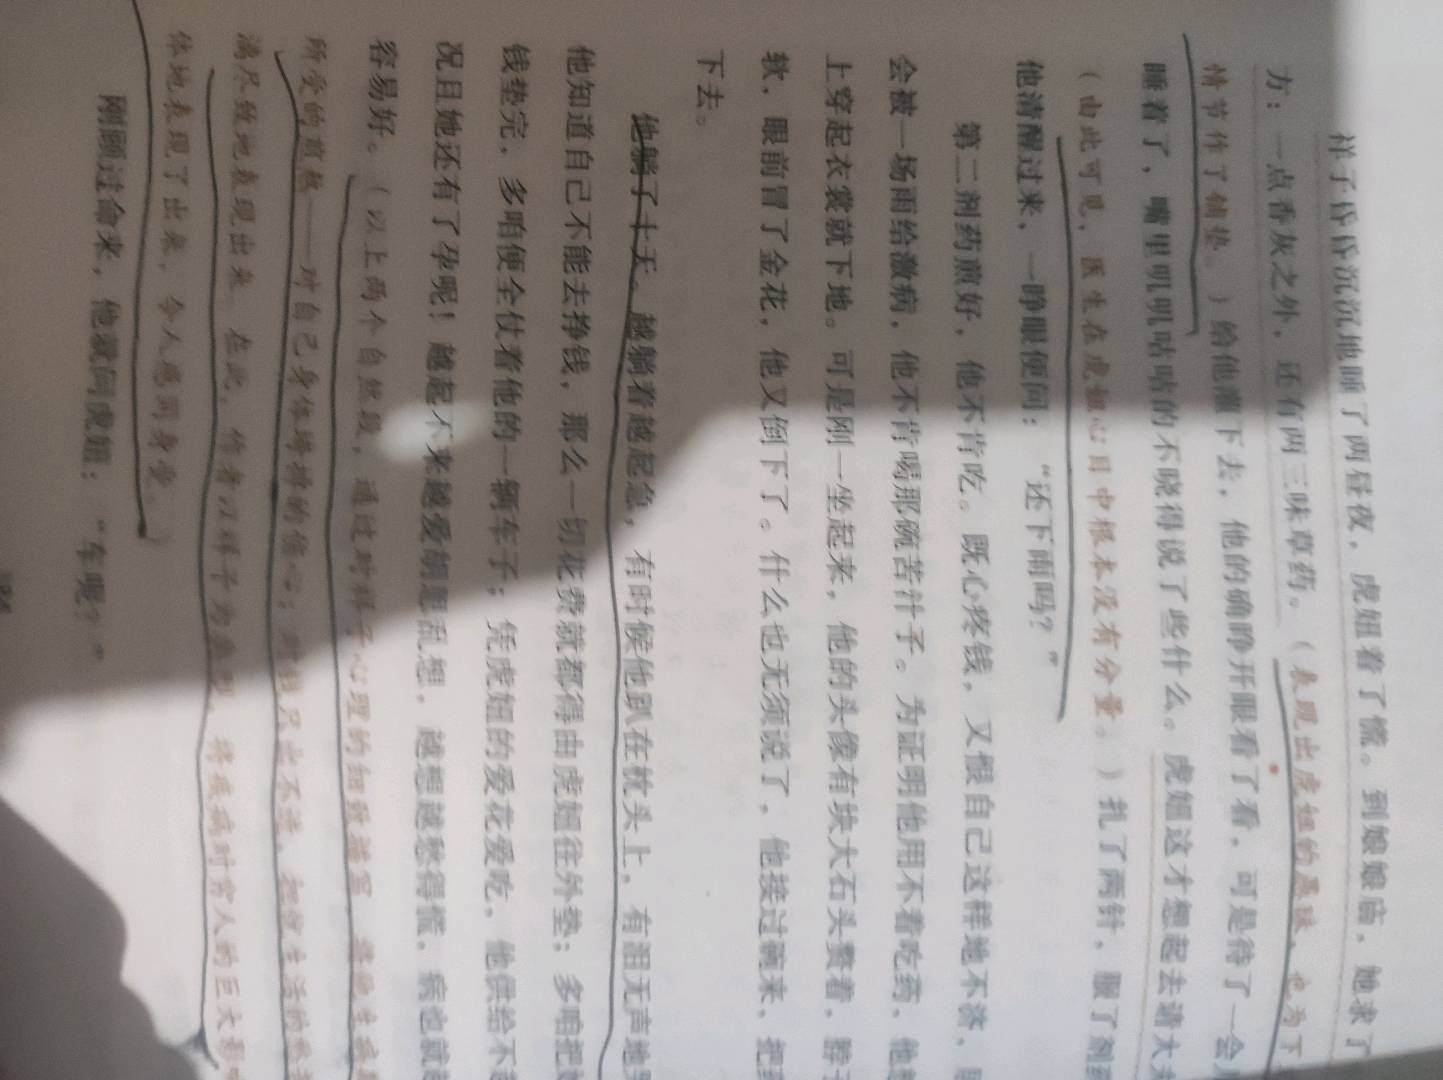 祥子昏昏沉沉地睡了两昼夜，虎妞着了慌。到娘娘庙，她求了
方：一点香灰之外，还有两三味草药。（表现出虎妞的愚昧，也为下
情节作了铺垫。）给他灌下去，他的确睁开眼看了看，可是待了一会儿
睡着了，嘴里叽叽咕咕的不晓得说了些什么。虎妞这才想起去请大夫
（由此可见，医生在虎妞心目中根本没有分量。）扎了两针，服了剂药
他清醒过来，一睁眼便问：“还下雨吗？”
第二剂药煎好，他不肯吃。既心疼钱，又恨自己这样地不济，
会被一场雨给激病，他不肯喝那碗苦汁子。为证明他用不着吃药，他想
上穿起衣裳就下地。可是刚一坐起来，他的头像有块大石头赘着，脖子
软，眼前冒了金花，他又倒下了。什么也无须说了，他接过碗来，把
下去。
他躺了十天。越躺着越起急，有时候他趴在枕头上，有泪无声地
他知道自己不能去挣钱，那么一切花费就都得由虎妞往外垫；多咱把她
钱垫完，多咱便全仗着他的一辆车子；凭虎妞的爱花爱吃，他供给不
况且她还有了孕呢！越起不来越爱胡思乱想，越想越愁得慌，病也就
容易好。（以上两个自然段，通过对祥子心理的细致描写，将他生病
所受的煎熬——对自己身体垮掉的信心；对钱只出不进，
漓尽致地表现出来。在此，作者以祥子为典型，将疾病对穷人的巨大影响
体地表现了出来，令人感同身受。）
刚顾过命来，他就问虎妞：“车呢？”